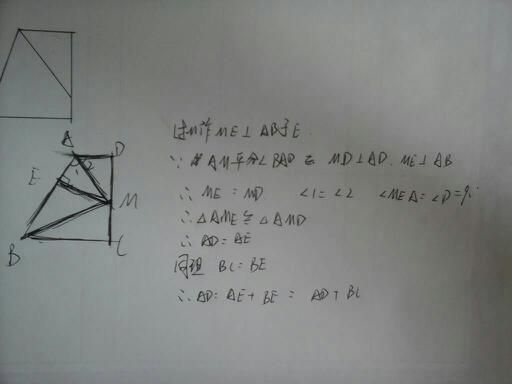 A D
1 2
E
M
B C
过M作ME⊥AB于E.
∵ AM平分∠BAD MD⊥AD. ME⊥AB
∴ ME = MD. ∠1=∠2 ∠MEA=∠D=90°
∴△AME≌△AMD
∴ AD=AE
同理 BC=BE
∴ AD= AE+BE = AD+BC